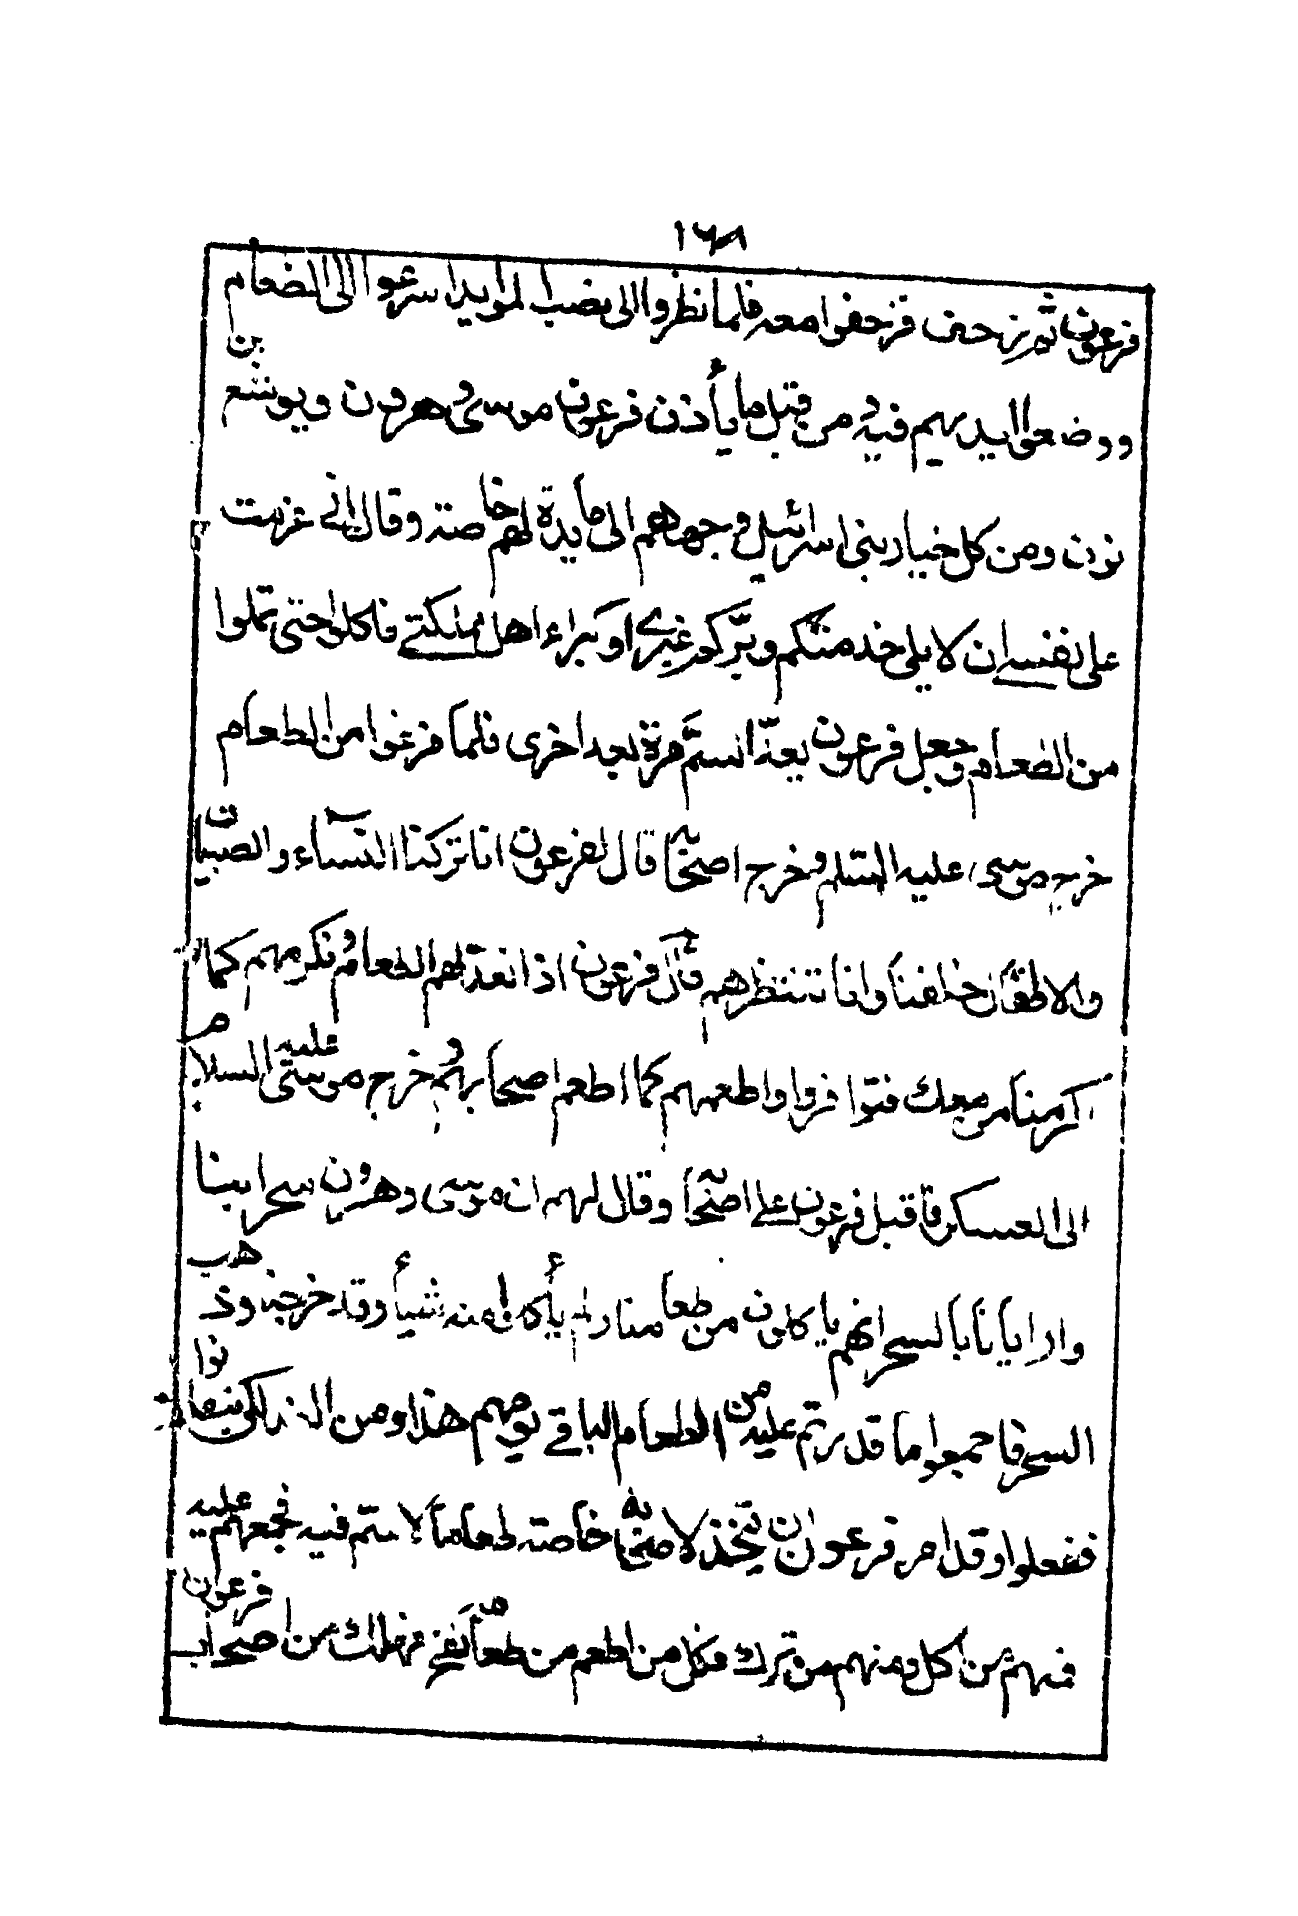 ١٦٨
فرعون ثم زحف فزحفوا معه فلما نظروا الى نصب الموايد اسرعوا الى الطعام
ووضعوا ايديهم فيه ومن قبل ما يأذن فرعون موسى وهرون ويوشع بن
نون ومن كل خيار بنى اسرائيل وجهاهم الى مايدة لهم خاصته وقال انى عزمت
على نفسى ان لا يلى خدمتكم وبركم غيرى او كبراء اهل مملكتى فاكلوا حتى تملوا
من الطعام وجعل فرعون يعد السم مرة بعد اخرى فلما فرغوا من الطعام
خرج موسى عليه السلم وخرج اصحابه قال لفرعون انا تركنا النساء والصبيان
والاطفال خلفنا وانا ننتظرهم قال فرعون اذا نعد لهم الطعام ونكرمهم كما
اكرمنا من معك فتوافروا واطعمهم كما اطعم اصحابهم وخرج موسى عليه السلام
الى العسكر فاقبل فرعون على اصحابه وقال لهم ان موسى وهرون سحرا بينا
وارايانا بالسحر انهم ياكلون من طعامنا ولم يأكلوا منه شيأ وقد خرجنه وذهب
السحر فاجمعوا ما قدرتم عليه من الطعام الباقى يومهم هذا ومن الغد لكى يتفانوا
ففعلوا وقد امر فرعون ان يتخذ لاصحابه خاصته طعاما لا سم فيه فجمعهم عليه
فمنهم من اكل ومنهم من ترك فكل من اطعم من طعامه نفخ فهلك من اصحاب فرعون